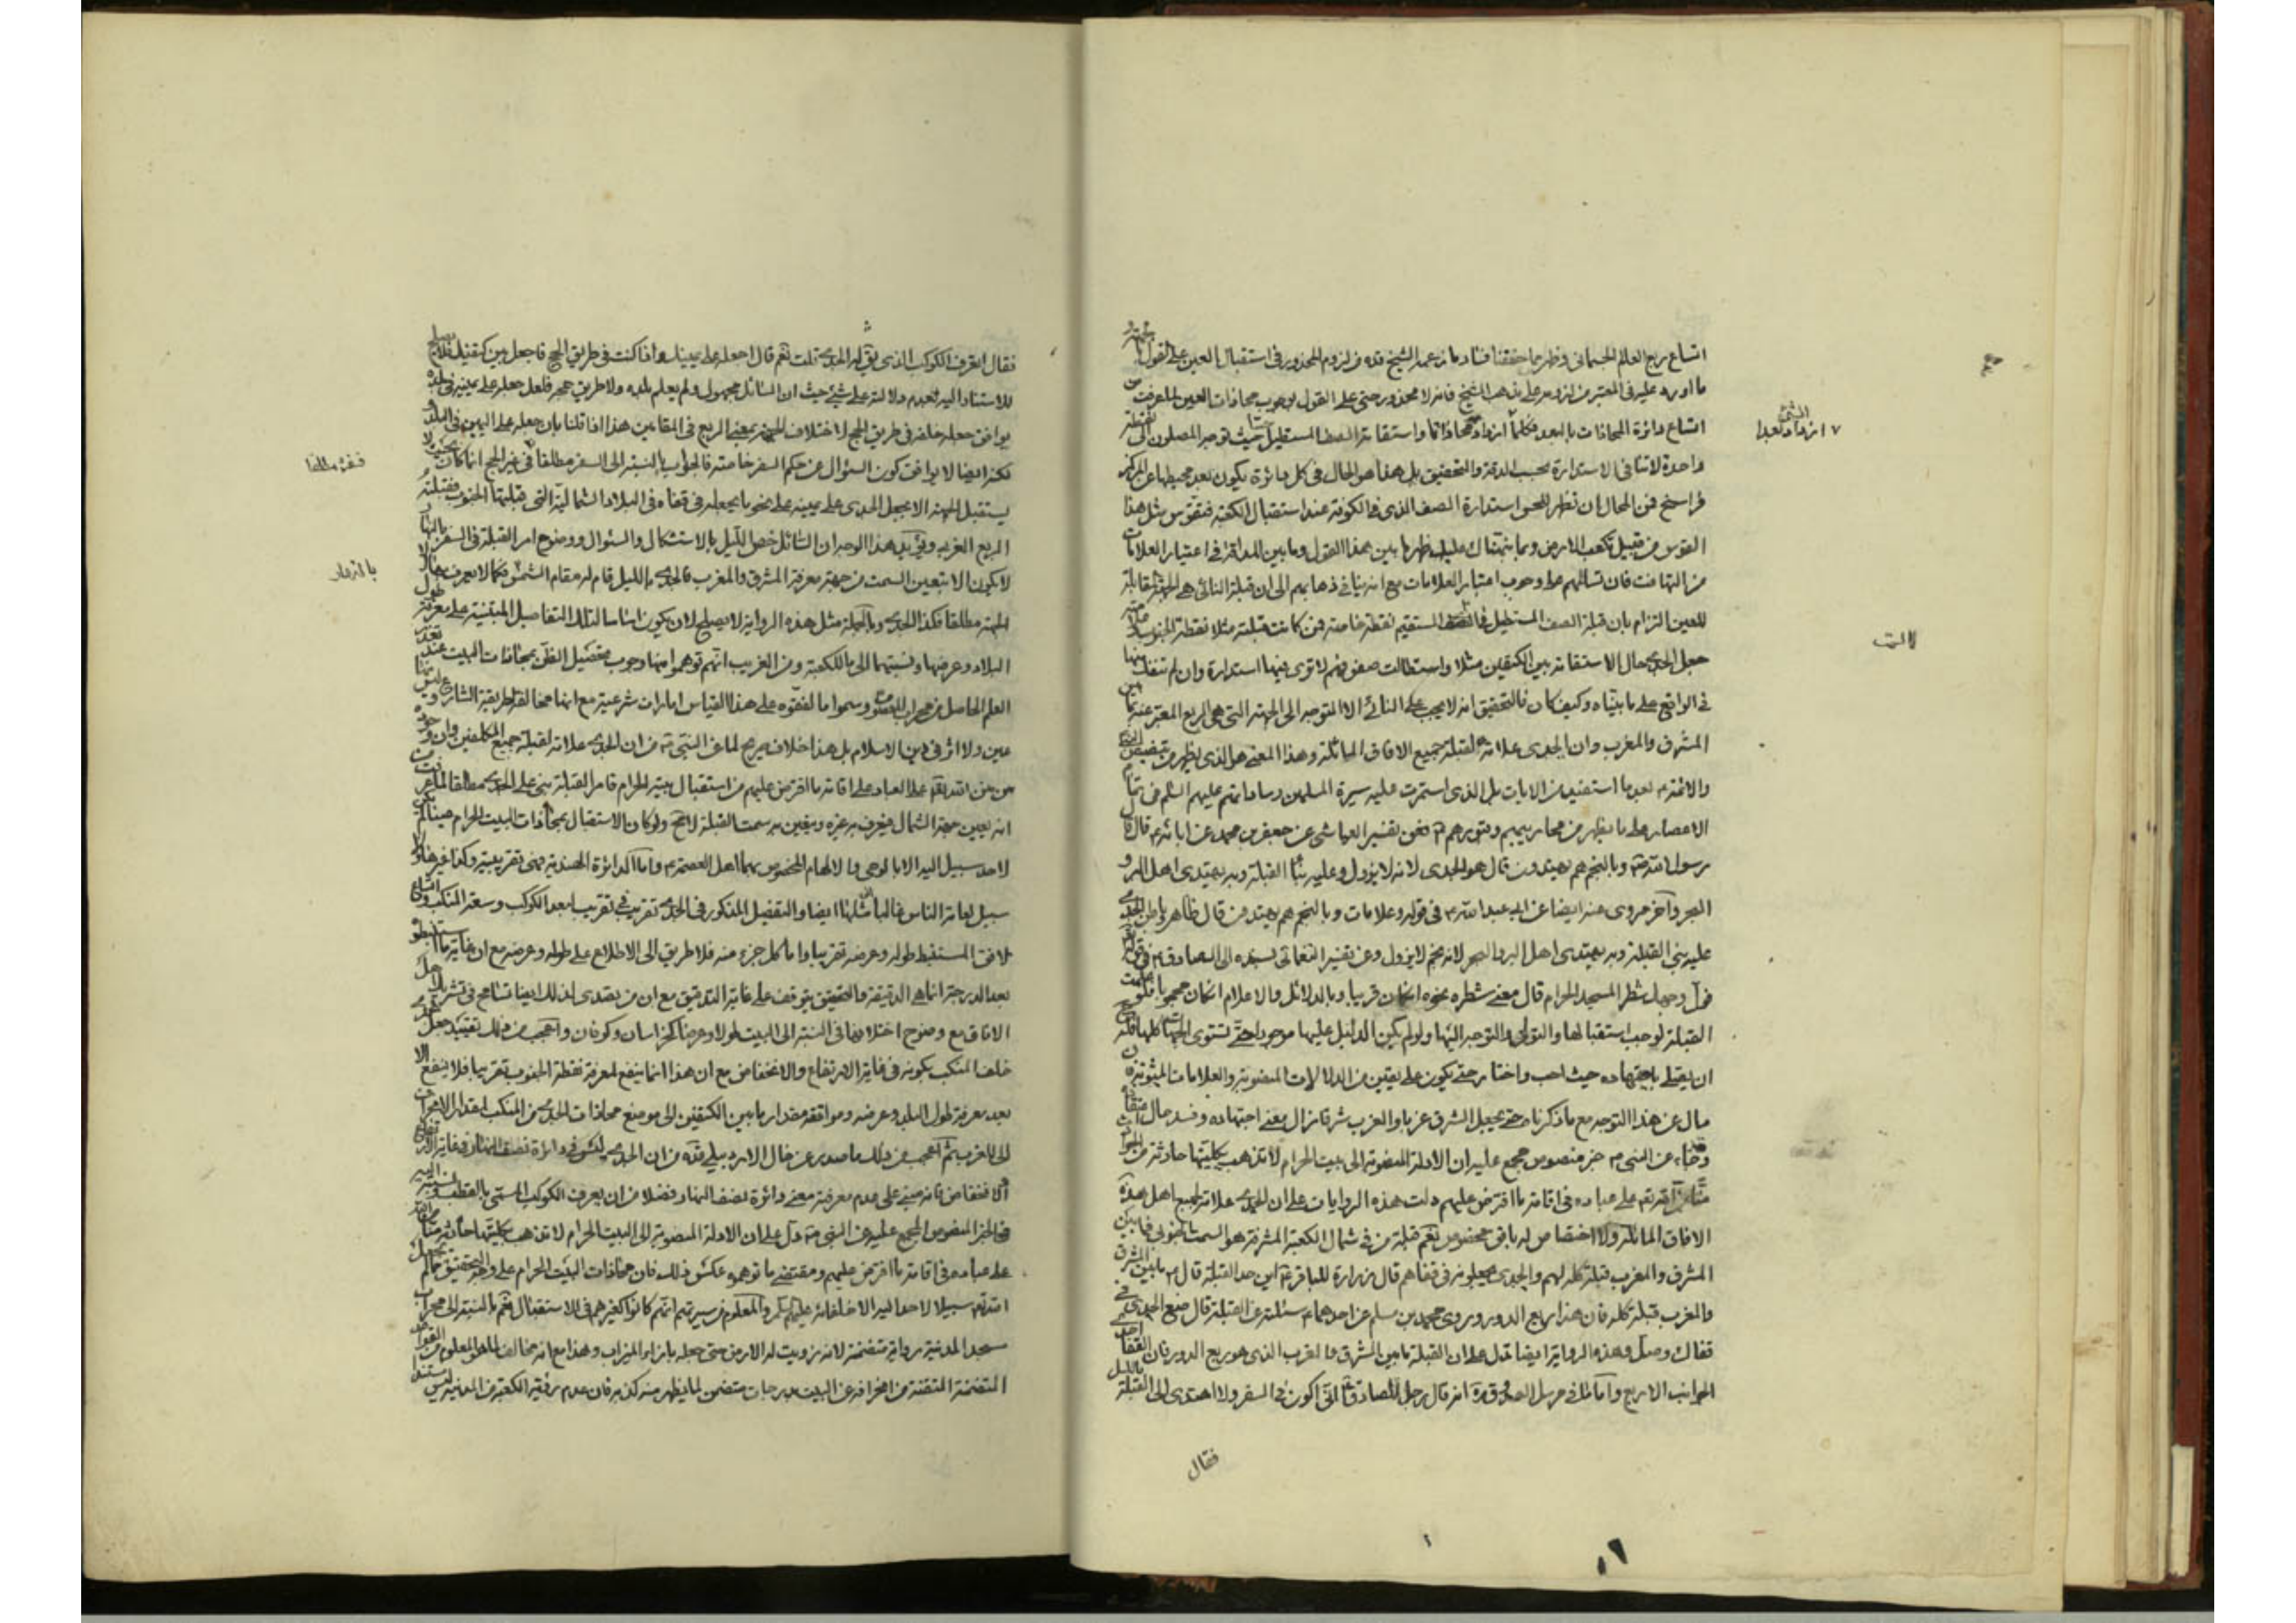 اتساع ربع العالم الجسماني وظهر مما حققنا فساد ما زعمه الشيخ قده من لزوم المحذور في استقبال العين على القول بالجهة و
ما اورده عليه في المعتبر من لزومه على مذهب الشيخ فانه لا محذور حتى على القول بوجوب محاذات العين لما عرفت من
اتساع دائرة المحاذات بالبعد فكلما ازداد محاذاتا واستقامة الصف المستطيل حيث توجه المصلون الى نقطة
واحدة لا تنافي الاستدارة بحسب الدقة والتحقيق بل هذا هو الحال في كل دائرة يكون بعد محيطها عن المركز
فراسخ فمن المحال ان تظهر للحس استدارة الصف الذي في الكوفة عند استقبال الكعبة فتقوس مثل هذا
القوس من قبيل تكعب الارض ومما ينبهناك عليه ظهر ما بين هذا القول وما بين المداقة في اعتبار العلامات
من التهافت فان تسالمهم على وجوب اعتبار العلامات مع انه ينافي ذهابهم الى ان قبلة النائي هي الجهة المقابلة
للعين التزام بان قبلة الصف المستطيل المستقيم نقطة خاصة فمن كانت قبلته مثلا نقطة الجنوب
جعل الجدي حال الاستقامة بين الكتفين مثلا واستطالت صفوفهم لا ترى فيها استدارة وان لم تنفك منها
في الواقع على ما بيناه وكيف كان فالتحقيق انه لا يجب على النائي الا التوجه الى الجهة التي هي الربع المعبر عنه بما بين
المشرق والمغرب وان الجدي علامة لقبلة جميع الافاق المائلة وهذا المعنى هو الذي يظهر من
والائمة ع بعد ما استفيد من الايات بل الذي استمرت عليه سيرة المسلمين وساداتهم عليهم السلم في تمام
الاعصار على ما يظهر من محاريبهم وقبورهم فعن تفسير العياشي عن جعفر بن محمد عن ابائه ع قال قال
رسول الله ص وبالنجم هم يهتدون قال هو الجدي لانه لا يزول وعليه بناء القبلة وبه يهتدي اهل البر و
البحر وآخر مروي عنه ايضا عن ابي عبد الله ع في قوله وعلامات وبالنجم هم يهتدون قال ظاهر وباطن الجدي
عليه بنى القبلة وبه يهتدي اهل البر والبحر لانه نجم لا يزول وعن تفسير النعماني بسنده الى الصادق ع في قوله
فول وجهك شطر المسجد الحرام قال معنى شطره نحوه ان كان قريبا وبالدلائل والاعلام ان كان محجوبا فلو علمت
القبلة لوجب استقبالها والتولي والتوجه اليها ولو لم يكن الدليل عليها موجودا حتى تستوي الجهات كلها فله
ان يصلي باجتهاده حيث احب واختار حتى يكون على يقين من الدلالات المنصوبة والعلامات المبثوثة فان
مال عن هذا التوجه مع ما ذكرناه حتى يجعل الشرق غربا والغرب شرقا زال معنى اجتهاده وفسد حال اعتقاده
وقد جاء عن النبي ص خبر منصوص مجمع عليه ان الادلة المنصوبة الى بيت الحرام لا تذهب بكليتها حادثة من الحوادث
منا من الله تعم على عباده في اقامة ما افترض عليهم دلت هذه الروايات على ان الجدي علامة لجميع اهل هذه
الافاق المائلة ولا اختصاص له بافق مخصوص نعم قبلة من في شمال الكعبة المشرفة هو السمت الجنوبي فما بين
المشرق والمغرب قبلة كله لهم والجدي يجعلونه في قفاهم قال زرارة للباقر ع اين حد القبلة قال ع ما بين المشرق
والمغرب قبلة كله فان هذا ربع الدور وروى محمد بن مسلم عن احدهما ع سئلته عن القبلة قال ضع الجدي في
قفاك وصل وهذه الرواية ايضا تدل على ان القبلة ما بين المشرق والمغرب الذي هو ربع الدور فان القفا احد
الجوانب الاربع واما ما في مرسل الصدوق ره انه قال رجل للصادق ع اني اكون في السفر ولا اهتدي الى القبلة بالليل
فقال
ازداد الشئ بعدا
فقال اتعرف الكوكب الذي يقال له الجدي قلت نعم قال اجعله على يمينك واذا كنت في طريق الحج فاجعله بين كتفيك فلا يصلح
للاستناد اليه لعدم دلالته على شيئ حيث ان السائل مجهول ولم يعلم بلده ولا طريق حجه فلعل جعله على يمينه في بلده
يوافق جعله خلفه في طريق الحج لاختلاف الجهة بمعنى الربع في المقامين هذا اذا قلنا بان جعله على اليمين في البلد
لكنه ايضا لا يوافق كون السؤال عن حكم السفر خاصة فالجواب بالنسبة الى السفر مطلقا في غير الحج انما كان بحيث لا
يستقبل الجهة الا بجعل الجدي على يمينه على نحو ما يجعله في قفاه في البلاد الشمالية التي قبلتها الجنوب فقبلته
الربع الغربي ويؤيد هذا الوجه ان السائل خص الليل بالاستشكال والسؤال ووضوح امر القبلة في السفر بالنهار
لا يكون الا بتعين السمت من جهة معرفة المشرق والمغرب فالجدي بالليل قام له مقام الشمس فكما لا يعرف
الجهة مطلقا فكذا الجدي وبالجملة مثل هذه الرواية لا يصلح لان يكون اساسا لتلك التفاصيل المبتنية على معرفة طول
البلاد وعرضها ونسبتهما الى ما للكعبة ومن الغريب انهم توهموا منها وجوب تحصيل الظن بمحاذات البيت عند تعذر
العلم الحاصل من محراب المعصوم وسموا ما لفقوه على هذا القياس امارات شرعية مع انها مخالفة لطريقة الشارع وليس منها
عين ولا اثر في دين الاسلام بل هذا خلاف صريح لما عن النبي ص من ان الجدي علامة لقبلة جميع المكلفين وان وجوده
من من الله تعم على العباد على اقامة ما افترض عليهم من استقبال بيته الحرام فامر القبلة بني على الجدي مطلقا لما عرفت
انه يعين جهة الشمال فيعرف به غيره ويعين به سمت القبلة لامحة ولو كان الاستقبال بمحاذات البيت الحرام عينا لم يكن
لاحد سبيل اليه الا بالوحي والالهام المخصوص بهما اهل العصمة ع واما الدائرة الهندية فهي تقريبية وكذا غيرها ولا
سبيل لعامة الناس غالبا ايضا والتفصيل المذكور في الجدي تقريب في تقريب لبعد الكوكب وسعة المنكب واتساع
الافق المستنبط طوله وعرضه تقريبا واما كل جزء منه فلا طريق الى الاطلاع على طوله وعرضه مع ان غاية ما استنبطوه
بعد الدرجة انما هي الدقيقة والتحقيق يتوقف على غاية التدقيق مع ان من تصدى لذلك ايضا تسامح في تشريك اهل
الافاق مع وضوح اختلافها في النسبة الى البيت طولا وعرضا كخراسان وكوفان واعجب من ذلك تقييد جعل الجدي
خلف المنكب بكونه في غاية الارتفاع والانخفاض مع ان هذا انما ينفع لمعرفة نقطة الجنوب تقريبا فلا ينفع الا
بعد معرفة طول البلد وعرضه وموافقة مقدار ما بين الكتفين الى موضع محاذات الجدي من المنكب لمقدار الانحراف
الى المغرب ثم اعجب من ذلك ما صدر عن خال الاردبيلي قده من ان الجدي ليس في دائرة نصف النهار في غاية الارتفاع
والانخفاض فانه مبني على عدم معرفته معنى دائرة نصف النهار فضلا من ان يعرف الكوكب المسمى بالقطب
في الخبر المنصوص المجمع عليه عن النبي ص دل على ان الادلة المنصوبة الى البيت الحرام لا تذهب بكليتها حادثة منا من الله
على عباده في اقامة ما افترض عليهم ومقتضى ما توهموه عكس ذلك فان محاذات البيت الحرام على وجه التحقيق مما لم يجعل
الله تعم سبيلا لاحد اليه الا خلفائه عليهم السلم والمعلوم من سيرتهم انهم كانوا كغيرهم في الاستقبال نعم بالنسبة الى محراب
مسجد المدينة رواية متضمنة لانه زويت له الارض حتى جعله بازاء الميزاب وهذا مع انه مخالف لما هو المعلوم من القواعد
المتقنة من انحرافه عن البيت بدرجات متضمن لما يظهر منه كذبه فان عدم رؤية الكعبة من المدينة ليس مستندا